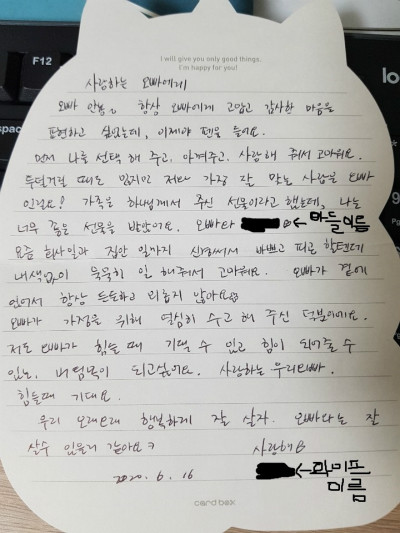 F12
I will give you only good things.
I'm happy for you!
사랑하는 오빠에게
오빠 안뇽. 항상 오빠에게 고맙고 감사한 마음을
표현하고 싶었는데, 이제야 펜을 들어요.
먼저 나를 선택 해 주고, 아껴주고, 사랑해 줘서 고마워요.
투덜거릴 때도 있지만 저와 가장 잘 맞는 사람은 오빠
인걸요! 가족은 하나님께서 주신 선물이라고 했는데, 나는
너무 좋은 선물을 받았어요. 오빠와 ←아들이름
요즘 회사일과 집안 일까지 신경써서 바쁘고 피곤 할텐데
내색없이 묵묵히 일 해줘서 고마워요. 오빠가 곁에
있어서 항상 든든하고 외롭지 않아요
오빠가 가정을 위해 열심히 수고 해 주신 덕분이에요.
저도 오빠가 힘들 때 기댈 수 있고 힘이 되어줄 수
있는, 버팀목이 되고싶어요. 사랑하는 우리오빠.
힘들때 기대요.
우리 오래오래 행복하게 잘 살자. 오빠와는 잘
살수 있을거 같아요ㅋ 사랑해
2020. 6. 16 ←와이프
이름
card box